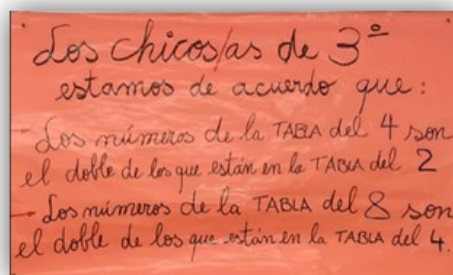 Los chicos/as de 3º
estamos de acuerdo que:
- Los números de la TABLA del 4 son
el doble de los que están en la TABLA del 2
→ Los números de la TABLA del 8 son
el doble de los que están en la TABLA del 4.